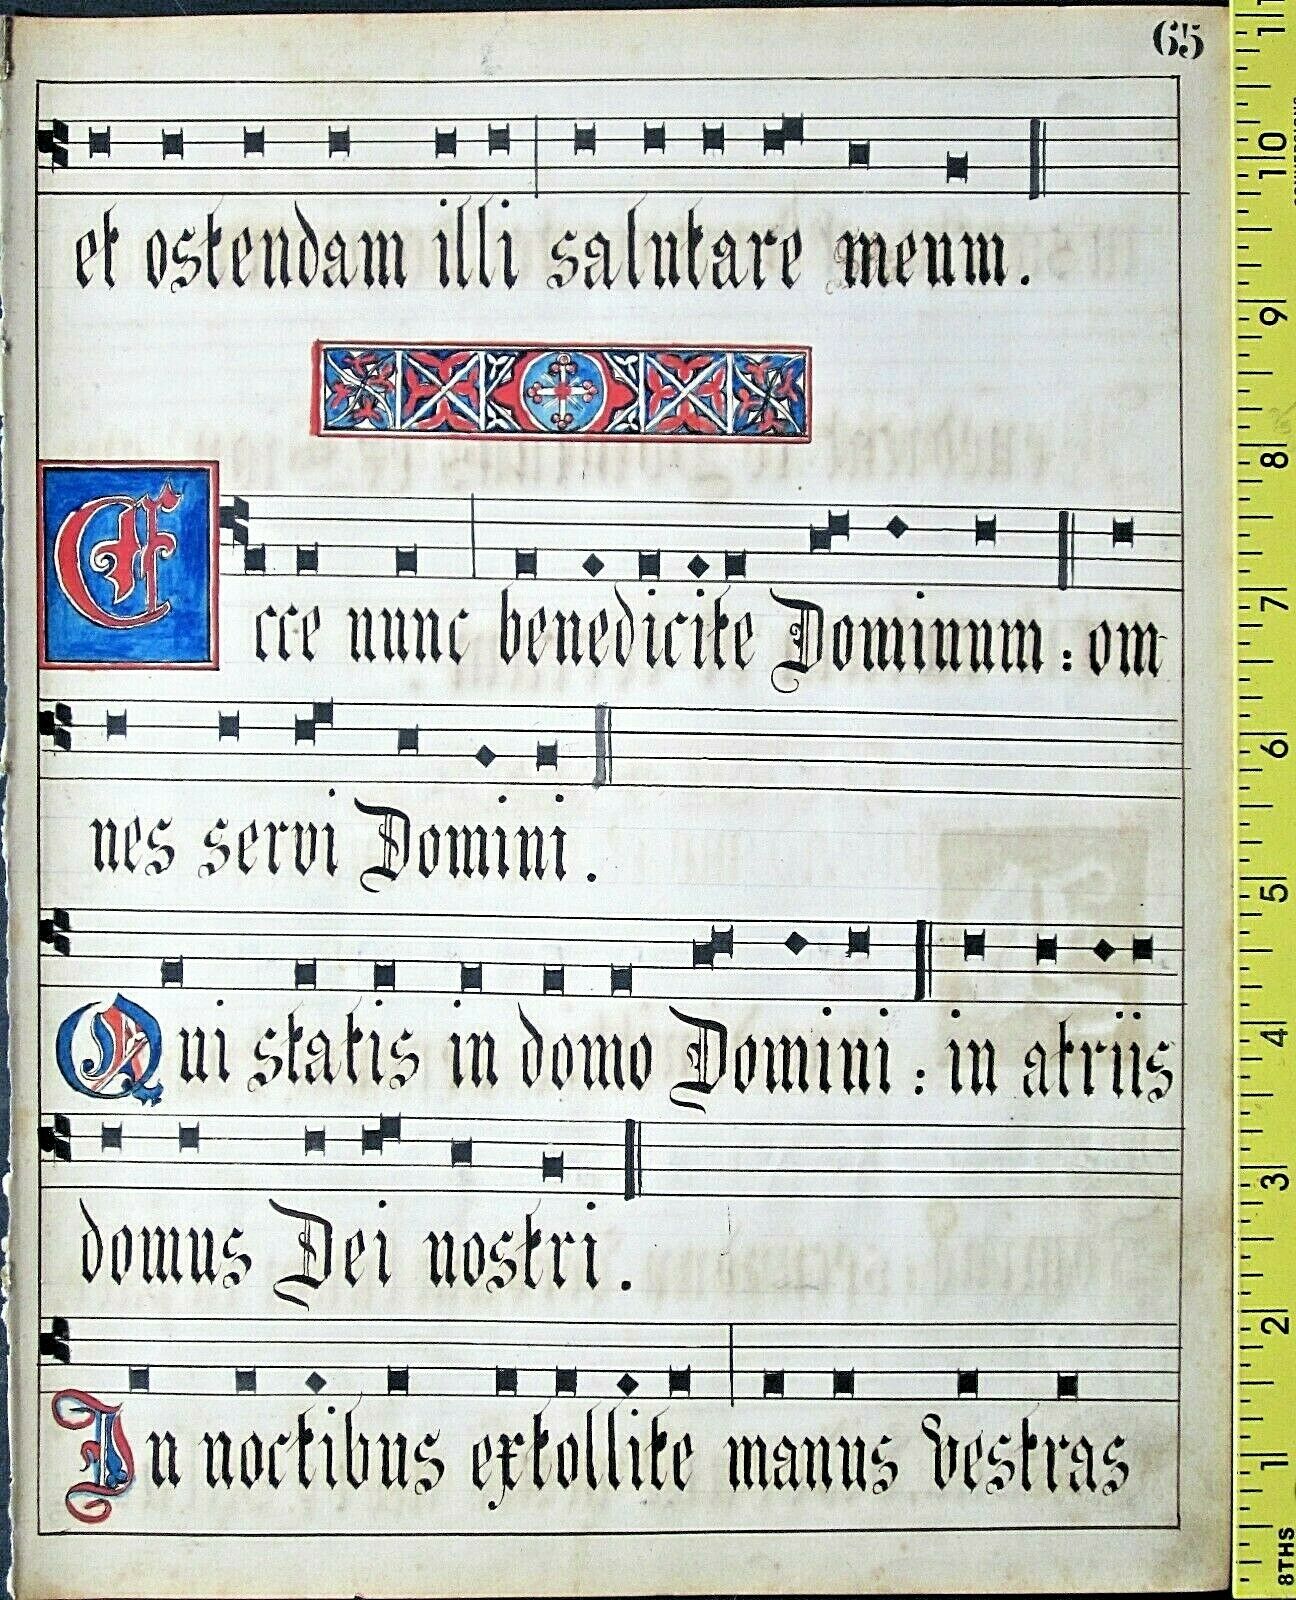 65
et ostendam illi salutare meum.
Ecce nunc benedicite Dominum : om
nes servi Domini.
Qui statis in domo Domini : in atriis
domus Dei nostri.
In noctibus extollite manus vestras
11
10
9
8
7
6
5
4
3
2
1
8THS